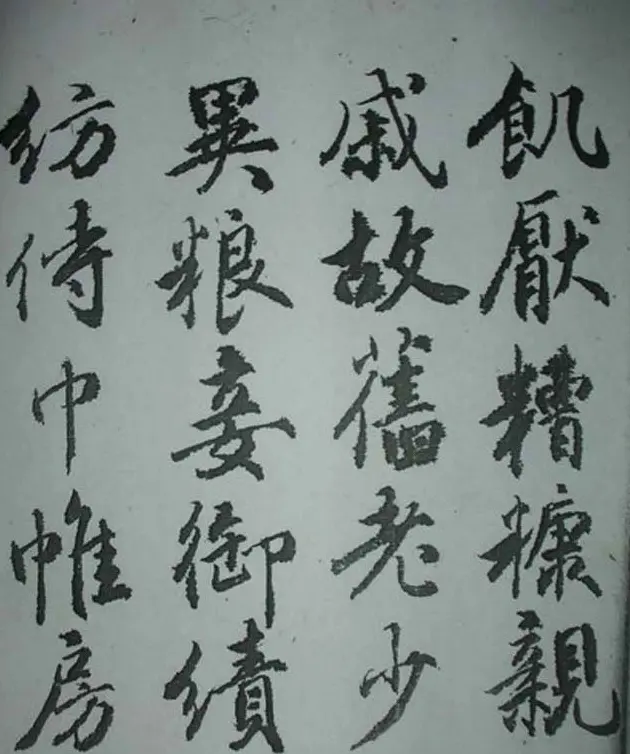 飢厭糟糠親
戚故舊老少
異粮妾御績
紡侍巾帷房